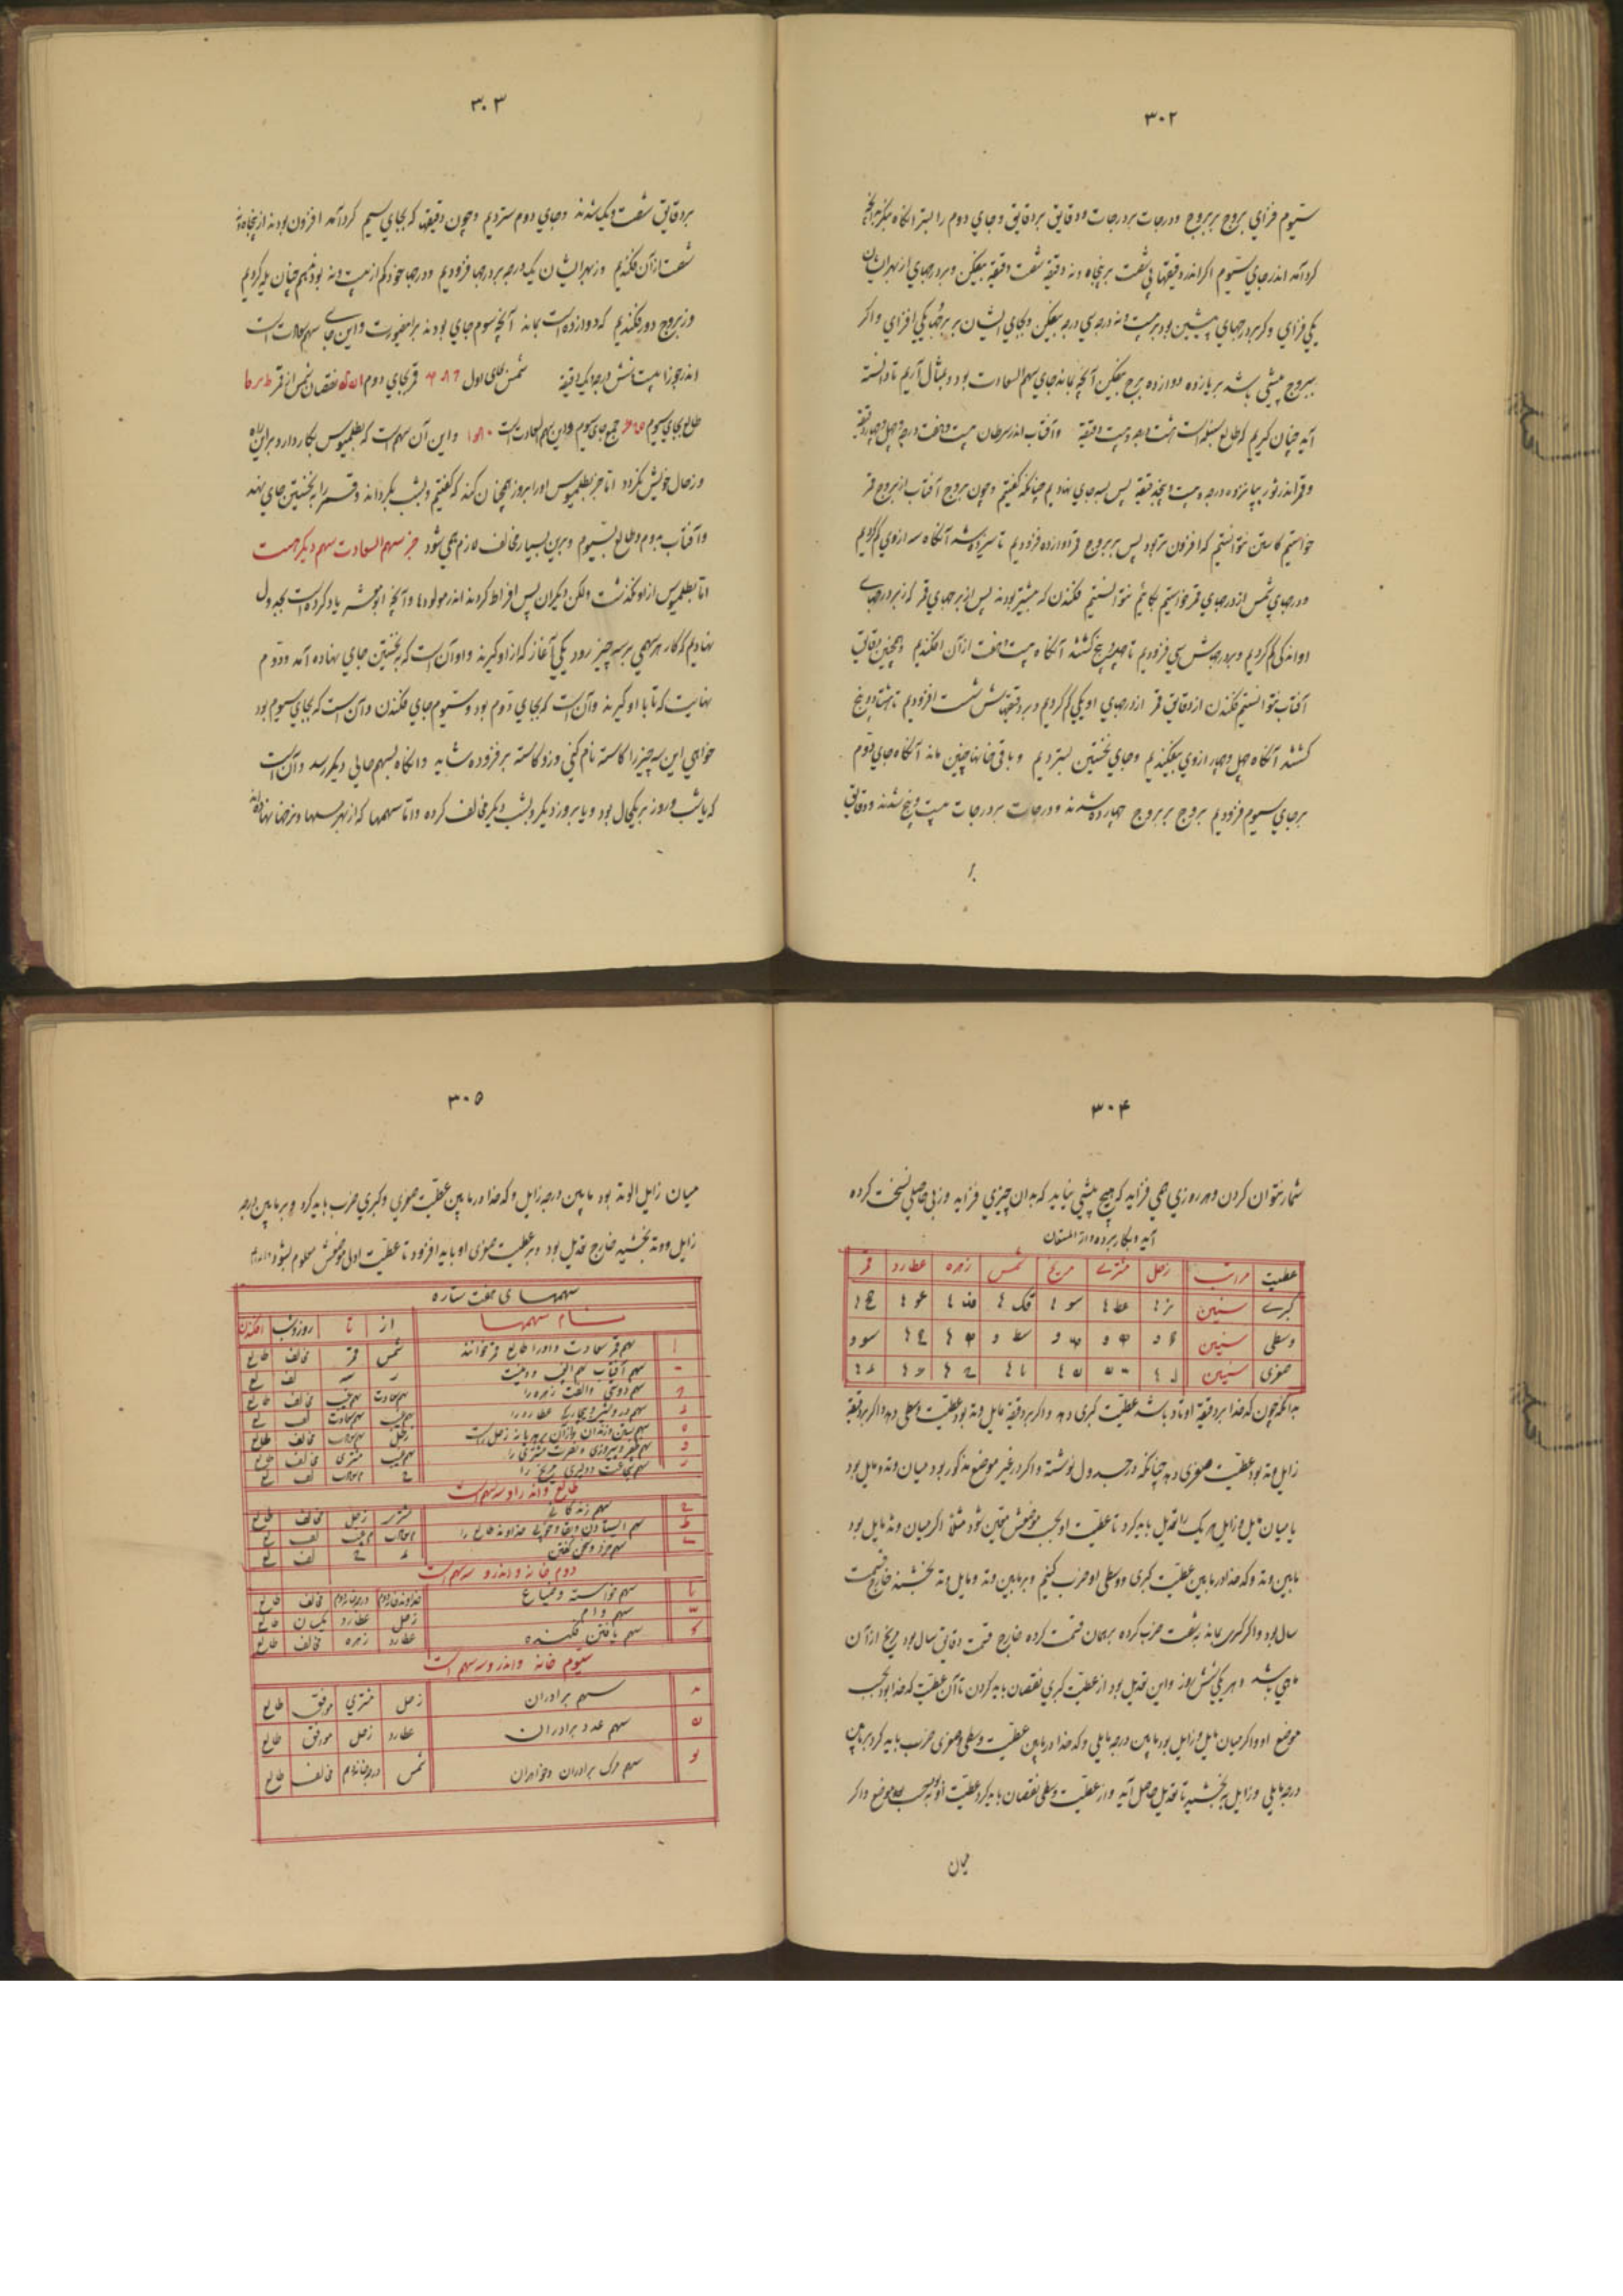 ۳۰۲
سیّوم فزای بروج بر بروج و درجات بر درجات و دقایق بر دقایق و جای دوم را بستر آنگاه بنگر بدانچ
گرد آمد اندر جای سیّوم اگر اندر دقیقها بیشست بر پنجاه و نه دقیقه شصت دقیقه بیفکن و بر درجهای از بهر ایشان
یکی فزای و گر بر درجهای پیشین بود بر بیست و نه درجه سی درجه بیفکن و بجای ایشان بر برجها یکی افزای و اگر
ببروج بیشی باشد بر یازده دوازده برج بیفکن آنچه بماند جای سهم السعادت بود و بمثال آریم تا دانسته
آید چنان گیریم که طالع سنبله است هشت درجه و بیست دقیقه و آفتاب اندر سرطان بیست و هفت درجه و چهل و چهار دقیقه
و قمر اندر ثور پانزده درجه و بیست و پنج دقیقه پس بسه جای نهادیم چنانکه گفتیم و چون بروج آفتاب از بروج قمر
خواستیم کاستن نتوانستیم که افزون تر بود پس بر بروج قمر دوازده فزودیم تا سیزده شد آنگاه سه از وی کم کردیم
و درجهای شمس از درجهای قمر خواستیم بکاهیم نتوانستیم فکندن که بیشتر بودند پس از برجهای قمر که زبر درجهای
او اند یکی کم کردیم و بر درجهاش سی فزودیم تا چهل و پنج گشتند آنگاه بیست و هفت از آن افکندیم و همچنین دقایق
آفتاب نتوانستیم فکندن از دقایق قمر از درجهای او یکی کم کردیم و بر دقیقهاش شصت افزودیم تا هشتاد و پنج
گشتند آنگاه چهل و چهار از وی بیفکندیم و جای نخستین بستردیم و باقی خانها چنین ماند آنگاه جای دوم
بر جای سیوم فزودیم بروج بر بروج چهارده شدند و درجات بر درجات بیست و پنج شدند و دقایق
بر
۳۰۳
بر دقایق شصت و یک شدند و جای دوم ستردیم و چون دقیقها که بجای سیم گرد آمد افزون بودند از پنجاه و نه
شصت از آن فکندیم و ز بهر ایشان یک درجه بر درجها فزودیم و درجها خود کم از بیست و نه بودند هم چنان یله کردیم
و ز بروج دور فکندیم که دوازده است بماند آنچه سوم جای بودند بر این صورت و این جای سهم سعادت است
اندر جوزا بیست و شش درجه و یک دقیقه شمس بجای اول قمر بجای دوم نقصان شمس از قمر
طالع بجای سیوم جمع جای سیوم و این سهم السعادت است و این آن سهم است که بطلمیوس بکار دارد و بر این راه
و ز حال خویش نگردد اما جز بطلمیوس او را بروز همچنان کند که گفتیم و بشب بگرداند و قمر را به نخستین جای نهند
و آفتاب بدوم و طالع بسیوم و برین بسیار مخالف لازم همی شود جز سهم السعادت سهم دیگر هست
اما بطلمیوس از او نگذشت ولکن دیگران پس افراط کردند اندر مولودها و آنچه ابو معشر یاد کرده است بجدول
نهادیم که کار هر سهمی بر سه چیز رود یکی آغاز که از او گیرند و او آن است که به نخستین جای نهاده آمد و دوم
نهایت که تا با او گیرند و آن است که بجای دوم بود و سیّوم جای فکندن و آن است که بجای سیوم بود
خواهی این سه چیز را کاسته نام کنی و زو کاسته بر فزوده شاید و آنگاه بسهم حالی دیگر رسد و آن است
که یا شب و روز بر یک حال بود و یا بروز دیگر و بشب دیگر مخالف کرده و اما سهمها که از بهر سالها و نرخها نهاده اند
۳۰۴
شمار نتوان کردن و هر روزی همی فزاید که هیچ پیشی نیاید که بدان چیزی فزاید و ز بی حاصلی نسخت کرده
آید و بکار برده و از المستعان
عطیت مراتب زحل مشتری مریخ شمس زهره عطارد قمر
کبری سنین
وسطی سنین
صغری سنین
بدانکه چون کدخدا بر دقیقه اوتاد باشد عطیت کبری دهد و اگر بر دقیقه مایل وتد بود عطیت وسطی دهد و اگر بر دقیقه
زایل وتد بود عطیت صغری دهد چنانکه در جدول نوشته و اگر در غیر موضع مذکور بود میان وتد و مایل بود
یا میان مایل و زایل هر یک را تعدیل باید کرد تا عطیت او بحسب موضعش متعین شود مثلا اگر میان وتد و مایل بود
مابین وتد و کدخدا در مابین عطیت کبری و وسطی او ضرب کنیم و بر مابین وتد و مایل وتد بخشند خارج قسمت
سال بود و اگر کسری بماند به شصت ضرب کرده بر همان قسمت کرده خارج قسمت دقایق سال بود هر پنج از آن
ماهی باشد و هر یکی شش روز و این تعدیل بود از عطیت کبری نقصان باید کردن تا آن عطیت کدخدا بود بحسب
موضع او و اگر میان مایل و زایل بود مابین درجه مایلی و کدخدا در مابین عطیت وسطی و صغری ضرب باید کرد و بر مابین
درجه مایلی و زایل بخشید تا تعدیل حاصل آید و از عطیت وسطی نقصان باید کرد عطیت او بود بحسب موضع و اگر
میان
۳۰۵
میان زایل و الوتد بود مابین درجه زایل و کدخدا در مابین عطیت صغری و کبری ضرب باید کرد و بر مابین درجه
زایل و وتد بخشید خارج تعدیل بود و بر عطیت صغری او باید افزود تا عطیت اولی موضعش معلوم بشود
سهمهای هفت ستاره
نام سهمها از تا روز و شب افکندن
ا سهم قمر سعادت و او را طالع قمر خوانند شمس قمر مخالف طالع
سهم آفتاب سهم الغیب
سهم دوستی و الفت زهره را سهم سعادت سهم غیب مخالف طالع
د سهم درویشی و بیچارگی عطارد را سهم غیب سهم سعادت
ه زحل راست زحل سهم سعادت مخالف طالع
و سهم ظفر و پیروزی و نصرت مشتری را سهم غیب مشتری مخالف طالع
ز سهم شجاعت و دلیری مریخ را
طالع و اندر او سه سهم است
ح سهم زندگانی مشتری زحل مخالف طالع
ط خداوند طالع را
سهم خرد و سخن گفتن
دوم خانه و اندر و سه سهم است
یا سهم خواسته و ضیاع خداوند خانه دوم درجه خانه دوم مخالف طالع
سهم وام زحل عطارد یکسان طالع
سهم یافتن فکنده عطارد زهره مخالف طالع
سیّوم خانه و اندر و سه سهم است
سهم برادران زحل مشتری موافق طالع
سهم عدد برادران عطارد زحل موافق طالع
یو سهم مرگ برادران و خواهران شمس درجه خانه دهم مخالف طالع